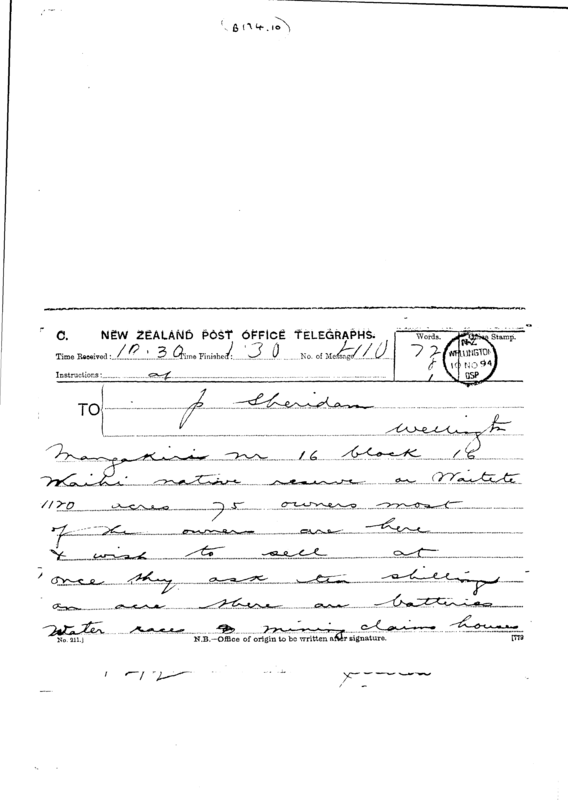 (B174.10)
C. NEW ZEALAND POST OFFICE TELEGRAPHS.
Words. Office Stamp.
Time Received: 10.30 Time Finished: 1 30 No. of Message
72
N.Z.
WELLINGTON
10 NO 94
OSP
Instructions:
TO J Sheridan
Wellingtn
Mangakirikiri nr 16 block 16
Waihi native reserve or Waitete
1120 acres 75 owners most
of the owners are here
& wish to sell at
once they ask ten shillings
an acre there are batteries
Water races & mining claims houses
No. 211.] N.B.—Office of origin to be written after signature. [779